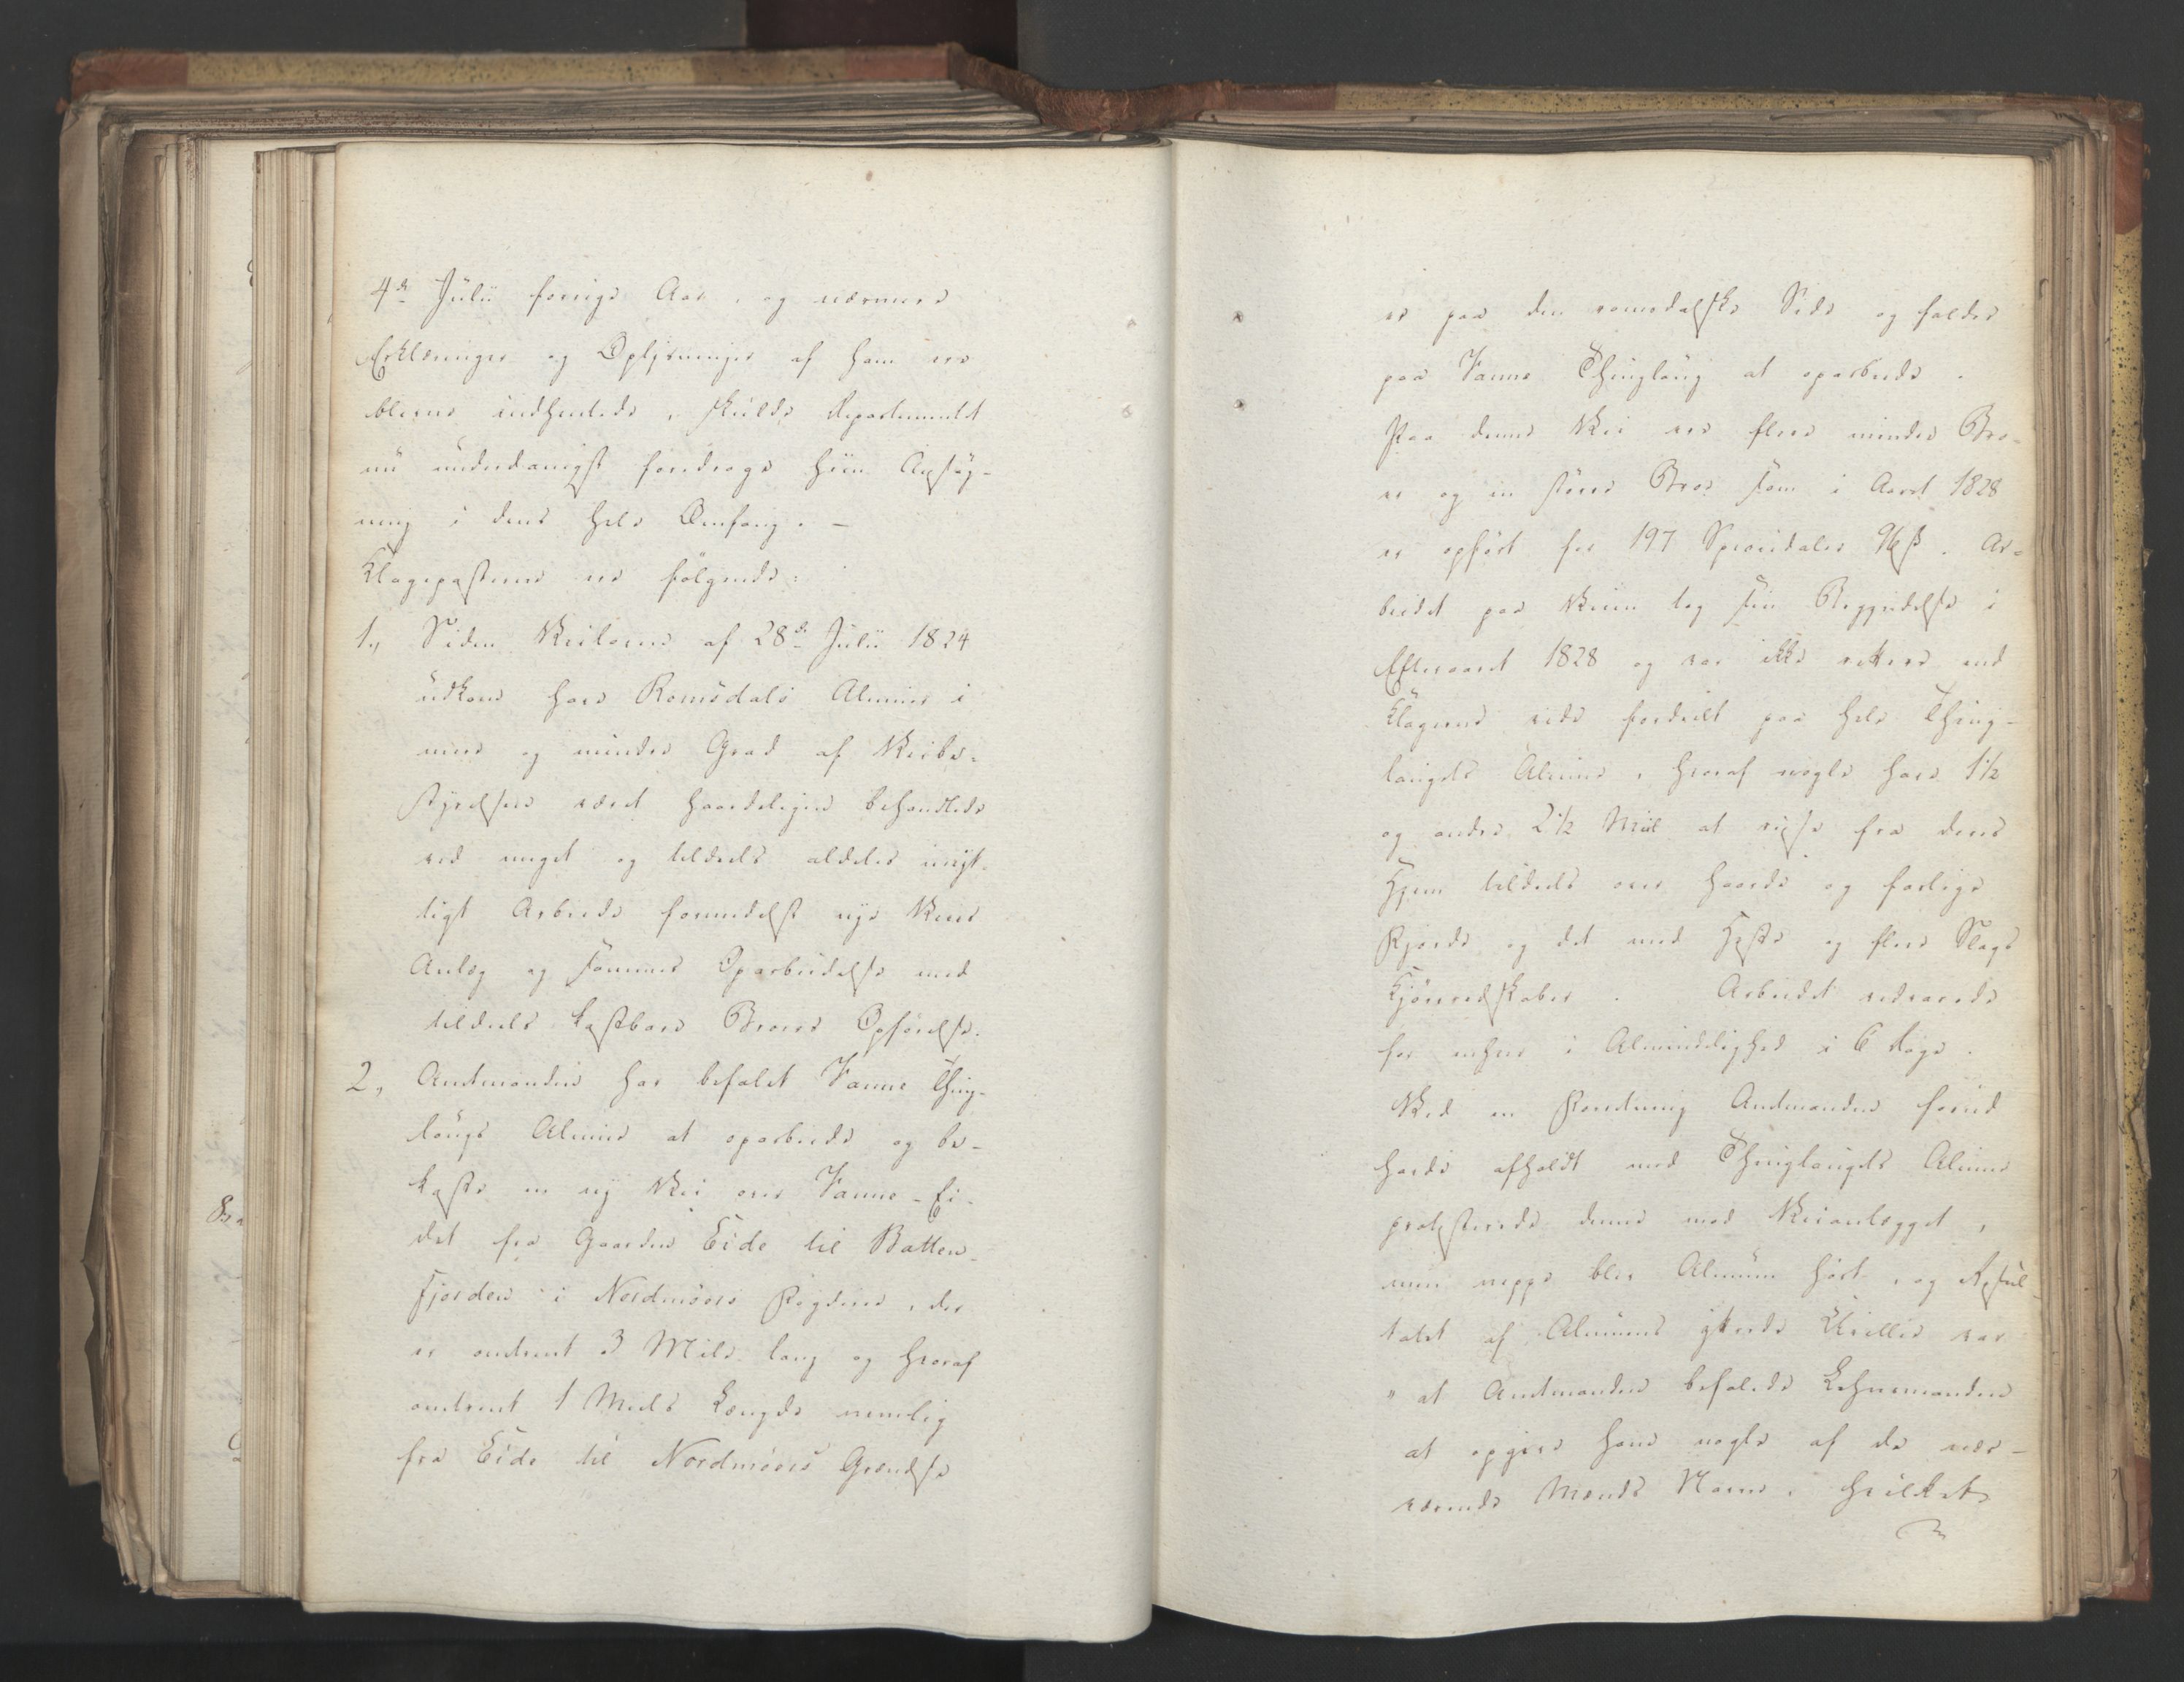 4de Julii forrige Aar, og nærmere
Erklæringer og Oplysninger af ham ere
blevne indhentede, skulde Departementet
nu underdanigst foredrage hiin Ansøg-
ning i dens hele Omfang. –
Klageposterne ere følgende:
1., Siden Veiloven af 28de Julii 1824
udkom have Romsdals Almuer i
meer og mindre Grad af Veibe-
styrelsen været haardeligen behandlede
ved meget og tildeels aldeles unyt-
tigt Arbeide formedelst nye Veies
Anlæg og sammes Oparbeidelse med
tildeels kostbare Broers Opførelse.
2, Amtmanden har befalet Vanne Thing-
laugs Almue at oparbeide og be-
koste en ny Vei over Vanne-Ei-
det fra Gaarden Eide til Batten-
Fjorden i Nordmöers Fogderie, der
er omtrent 3 Mile lang og hvoraf
omtrent 1 Miils Længde nemlig
fra Eide til Nordmöers Grændse
er paa den romsdalske Side og falder
paa Vanne Thinglaug at oparbeide.
Paa denne Vei ere flere mindre Bro-
er og en større Broe som i Aaret 1828
er opført for 197 Speciedaler 96 ß. Ar-
beidet paa Veien tog sin Begyndelse i
Efteraaret 1828 og var ikke rettere end
Klagerne vide fordeelt paa hele Thing-
laugets Almue, hvoraf nogle have 1½
og andre 2½ Miil at reise fra deres
Hjem tildeels over haarde og farlige
Fjorde og det med Heste og flere Slags
Kjøreredskaber. Arbeidet vedvarede
for enhver i Almindelighed i 6 Dage.
Ved en Forretning Amtmanden forud
havde afholdt med Thinglaugets Almue
protesterede denne mod Veianlægget,
men neppe blev Almuen hørt, og Resul-
tatet af Almuens yttrede Uvillie var
" at Amtmanden befalede Lehnsmanden
at opgive ham nogle af de nær-
værende Mænds Navne, hvilket